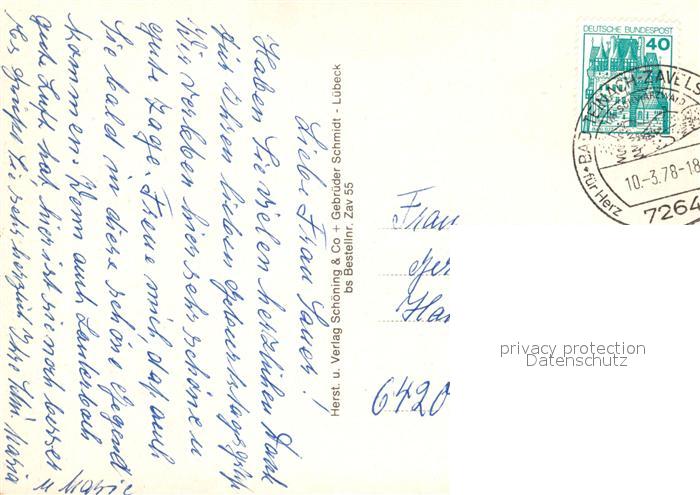 Liebe Frau Sauer!
Haben Sie vielen herzlichen Dank
für Ihren lieben Geburtstagsgruß
Wir verleben hier sehr schöne u
gute Tage. Freue mich, daß auch
Sie bald in diese schöne Gegend
kommen. Wenn auch Lauterbach
gute Luft hat, hier ist sie noch besser
Es grüßt Sie sehr herzlich Ihre
Maria
u Marie
Herst. u. Verlag Schöning & Co + Gebrüder Schmidt - Lübeck
bs Bestellnr. Zav 55
DEUTSCHE BUNDESPOST
40
BAD TEINACH-ZAVELS
10.-3.78-18
für Herz
7264
Frau
Ger
Ha
6420
privacy protection
Datenschutz